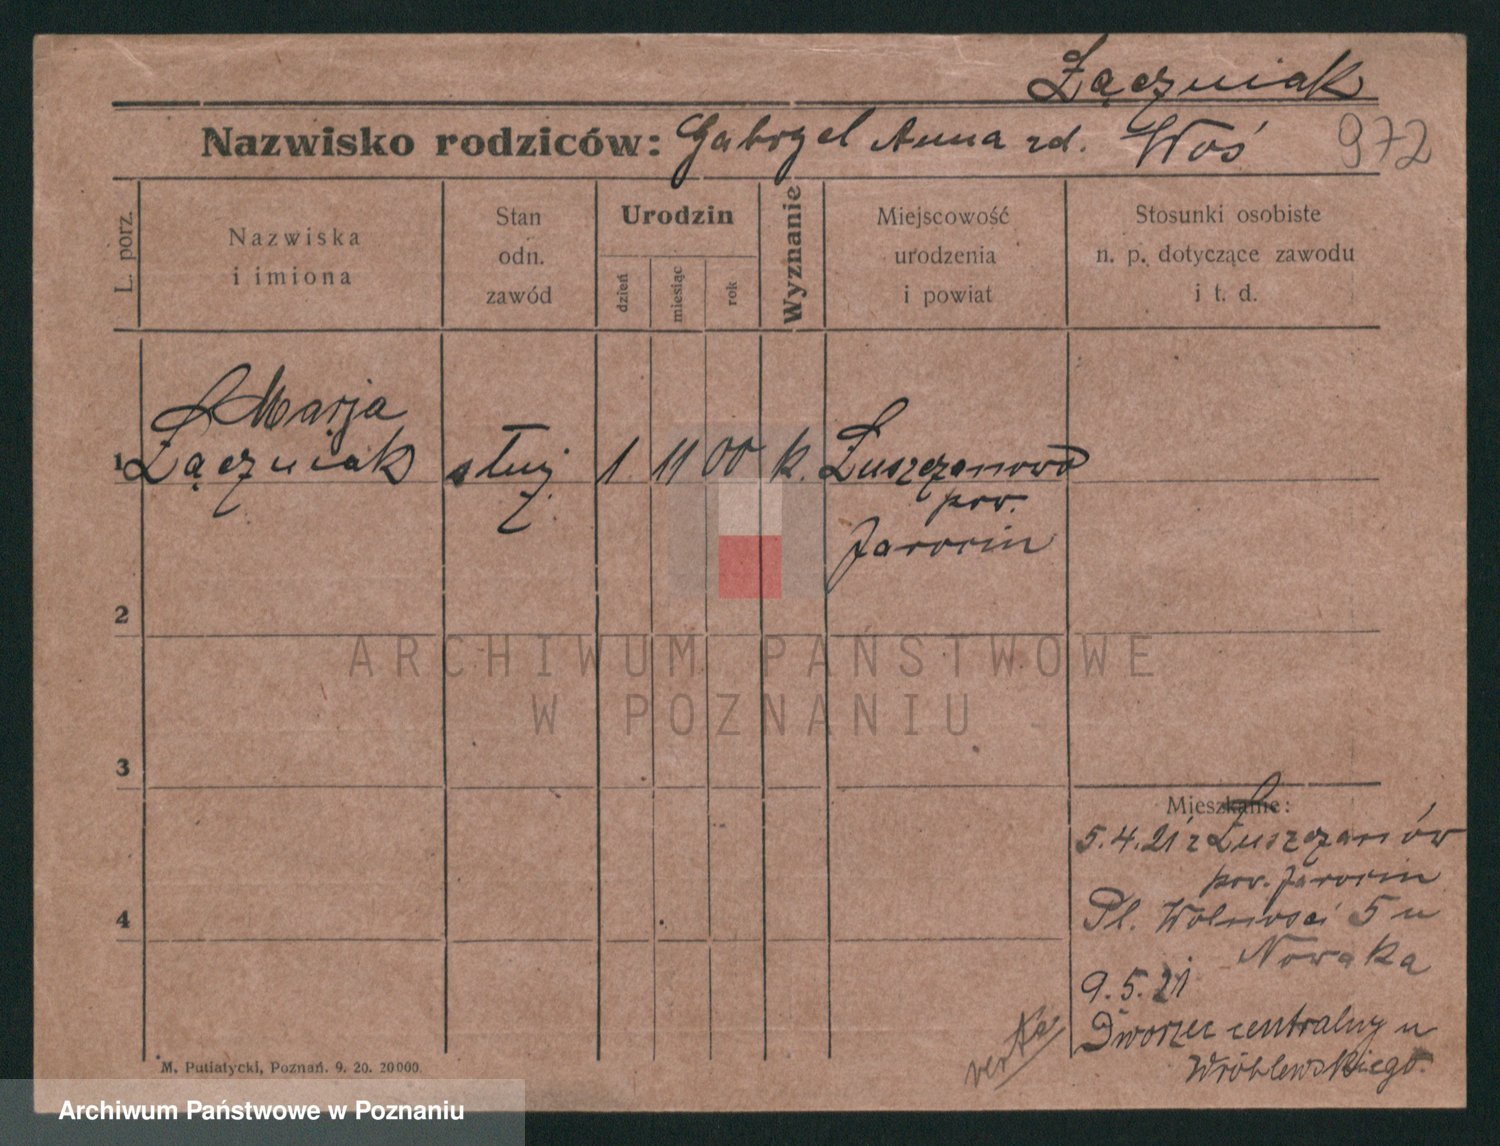 Łączniak
Nazwisko rodziców: Gabryel Anna zd. Woś 972
L. porz.
Nazwiska
i imiona
Stan
odn.
zawód
Urodzin
dzień
miesiąc
rok
Wyznanie
Miejscowość
urodzenia
i powiat
Stosunki osobiste
n. p. dotyczące zawodu
i t. d.
Marja
1 Łączniak służ. 1 11 00 k. Łuszczanowo
pow.
Jarocin
2
ARCHIWUM PAŃSTWOWE
W POZNANIU
3
Mieszkanie:
5.4.21 z Łuszczanów
pow. Jarocin
4
Pl. Wolnosci 5 u
Nowaka
9.5.21
Dworzec centralny u
Wróblewskiego.
verte
M. Putiatycki, Poznań. 9. 20. 20000.
Archiwum Państwowe w Poznaniu